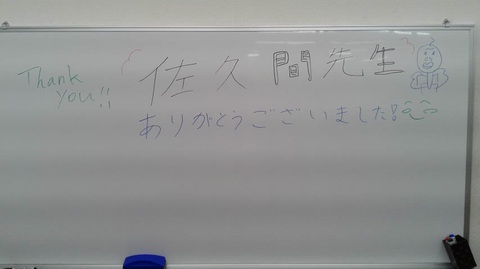 Thank
you!!
佐久間先生
ありがとうございました!